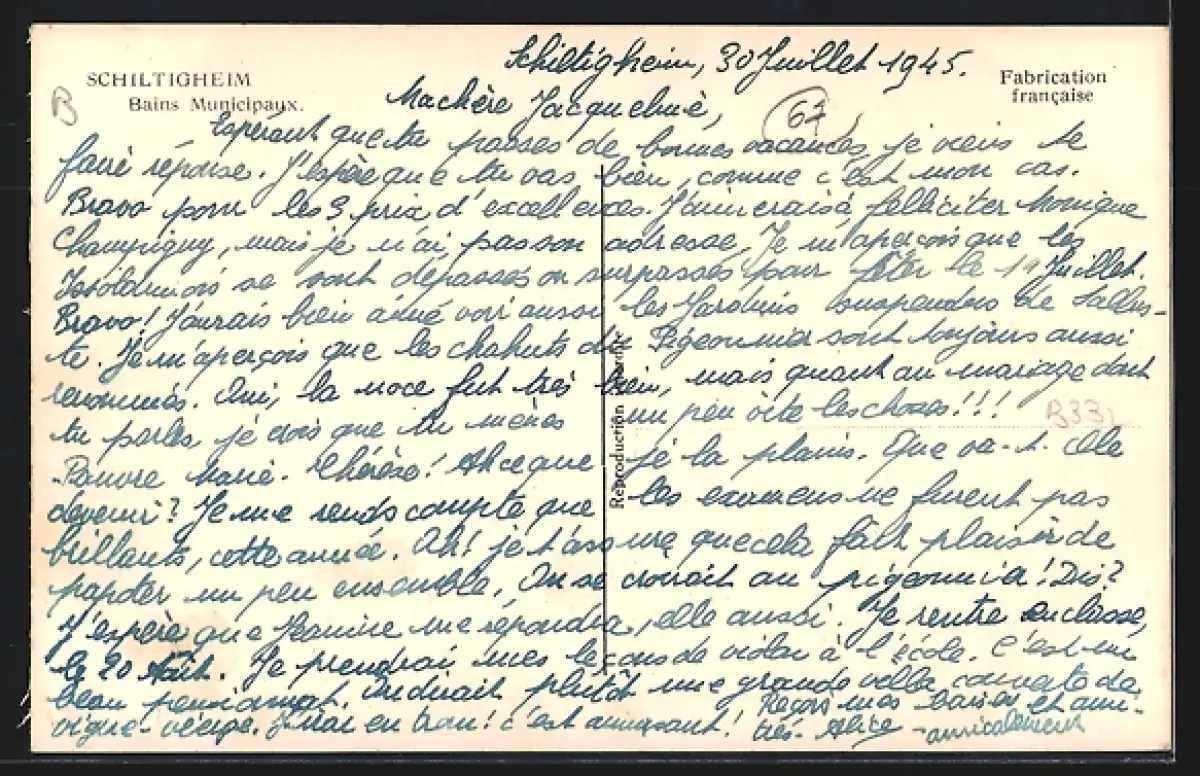 SCHILTIGHEIM
Bains Municipaux.
Fabrication
française
Schiltigheim, 30 Juillet 1945.
Ma chère Jacqueline,
67
B
Espérant que tu passes de bonnes vacances, je viens te
faire réponse. J'espère que tu vas bien, comme c'est mon cas.
Bravo pour les 3 prix d'excellences. J'aimerais à félliciter Monique
Champigny, mais je n'ai pas son adresse. Je m'aperçois que les
se sont dépassés ou surpassés pour fêter le 14 Juillet.
Bravo! J'aurais bien aimé voir aussi les Jardins suspendus de Sallus-
te. Je m'aperçois que les chahuts du Pigeonnier sont toujours aussi
renommés. Oui, la noce fut très bien, mais quant au mariage dont
tu parles je crois que tu mènes un peu vite les choses!!!
Pauvre Marie-Thérèse! Ah ce que je la plains. Que va-t-elle
devenir? Je me rends compte que les examens ne furent pas
brillants, cette année. Ah! je t'assure que cela fait plaisir de
papoter un peu ensemble. On se croirait au pigeonnier! Dis?
J'espère que Jeanine me répondra, elle aussi. Je rentre en classe,
le 20 Août. Je prendrai mes leçons de violon à l'école. C'est un
beau pensionnat. On dirait plutôt une grande villa couverte de
vigne-vierge. J'irai en tram! c'est amusant! Reçois mes baisers et ami-
tiés. Alice
-amicalement
Reproduction interdite
B33